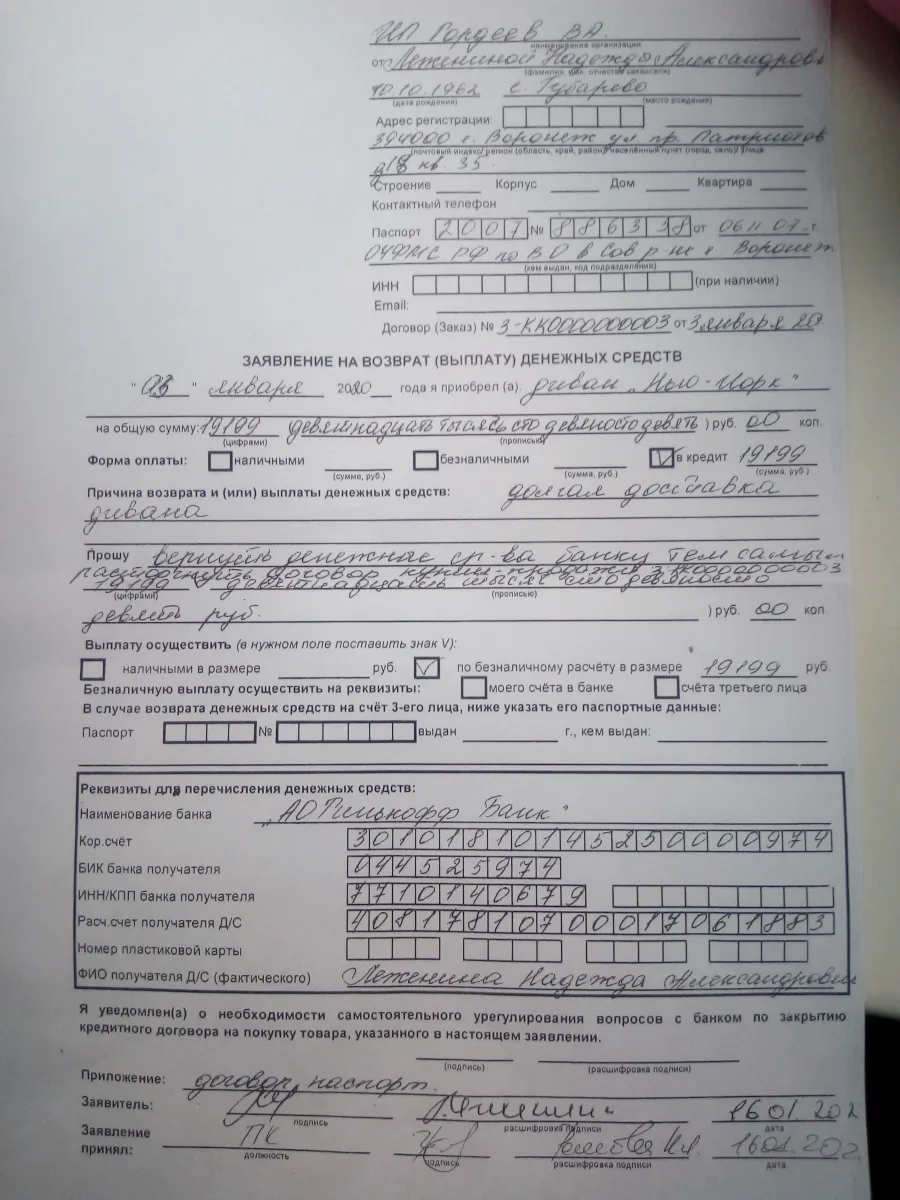 ИП Гордеев В.А.
наименование организации
от Лежениной Надежды Александровн
(фамилия, имя, отчество заявителя)
10.10.1962 с. Губарево
(дата рождения) (место рождения)
Адрес регистрации:
394000 г. Воронеж ул. пр. Патриотов
(почтовый индекс/ регион (область, край, район)/ населённый пункт (город, село)/ улица
д18 кв. 35.
Строение Корпус Дом Квартира
Контактный телефон
Паспорт 2007 № 886338 от 06 11 07 г.
ОУФМС РФ по ВО в Сов р-не г Воронеж
(кем выдан, код подразделения)
ИНН (при наличии)
Email:
Договор (Заказ) № 3-КК0000000003 от 3 января 20
ЗАЯВЛЕНИЕ НА ВОЗВРАТ (ВЫПЛАТУ) ДЕНЕЖНЫХ СРЕДСТВ
" 03 " января 2020 года я приобрел (а): диван "Нью-Йорк"
на общую сумму: 19199 (девятнадцать тысяч сто девяносто девять ) руб. 00 коп.
(цифрами) (прописью)
Форма оплаты: наличными безналичными V в кредит 19199
(сумма, руб.) (сумма, руб.) (сумма, руб.)
Причина возврата и (или) выплаты денежных средств: долгая доставка
дивана
Прошу вернуть денежные ср-ва банку тем самым
расторгнуть договор купли-продажи 3-КК0000000003
19199 девятнадцать тысяч сто девяносто
(цифрами) (прописью)
девять руб. ) руб. 00 коп.
Выплату осуществить (в нужном поле поставить знак V):
наличными в размере руб. V по безналичному расчёту в размере 19199 руб.
Безналичную выплату осуществить на реквизиты: моего счёта в банке счёта третьего лица
В случае возврата денежных средств на счёт 3-его лица, ниже указать его паспортные данные:
Паспорт № выдан г., кем выдан:
Реквизиты для перечисления денежных средств:
Наименование банка "АО Тинькофф Банк"
Кор.счёт 30101810145250000974
БИК банка получателя 044525974
ИНН/КПП банка получателя 7710140679
Расч.счет получателя Д/С 40817810700017061883
Номер пластиковой карты
ФИО получателя Д/С (фактического) Леженина Надежда Александровн
Я уведомлен(а) о необходимости самостоятельного урегулирования вопросов с банком по закрытию
кредитного договора на покупку товара, указанного в настоящем заявлении.
(подпись) (расшифровка подписи)
Приложение: договор, паспорт.
Заявитель: 16.01.202
подпись расшифровка подписи дата
Заявление
принял: ПК 16.01.202
должность подпись расшифровка подписи дата